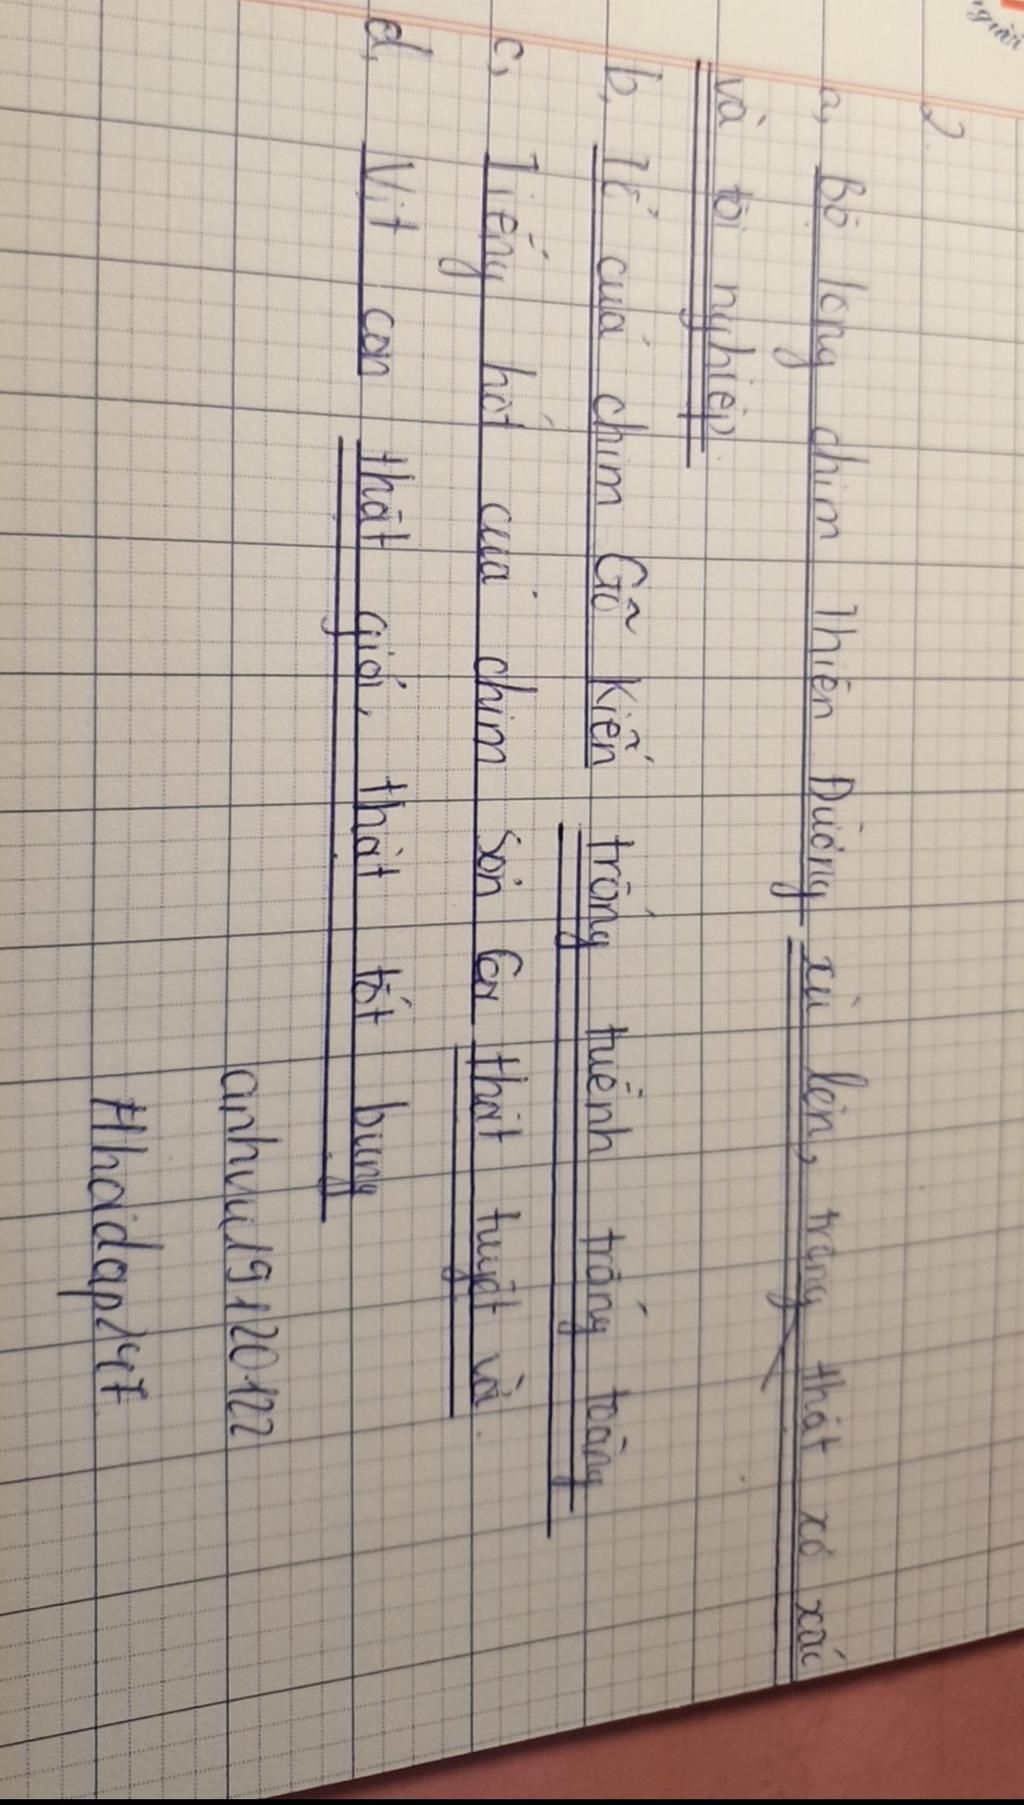 người
2.
a, Bộ lông chim Thiên Đường xù lên, trông thật xơ xác
và tội nghiệp.
b, Tổ của chim Gõ Kiến trống tuềnh trống toàng
c, Tiếng hót của chim Sơn Ca thật tuyệt vời.
d, Vịt con thật giỏi, thật tốt bụng
anhvu19120122
Hhdidapd47